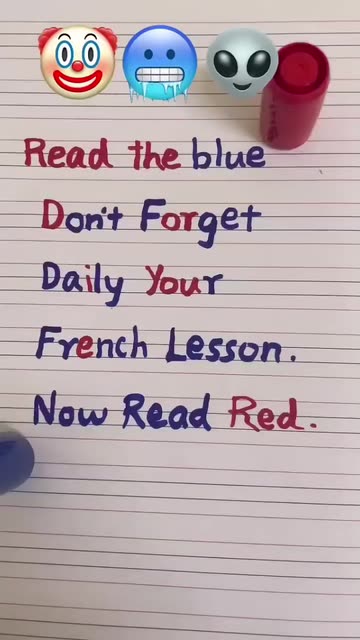 Read the blue
Don't Forget
Daily Your
French Lesson.
Now Read Red.